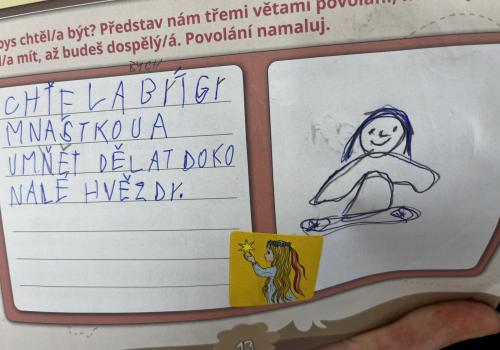 bys chtěl/a být? Představ nám třemi větami povolání,
l/a mít, až budeš dospělý/á. Povolání namaluj.
BYCH
CHTĚLA BÝT GY
MNASTKOU A
UMŇĚT DĚLAT DOKO
NALÉ HVĚZDY.
13